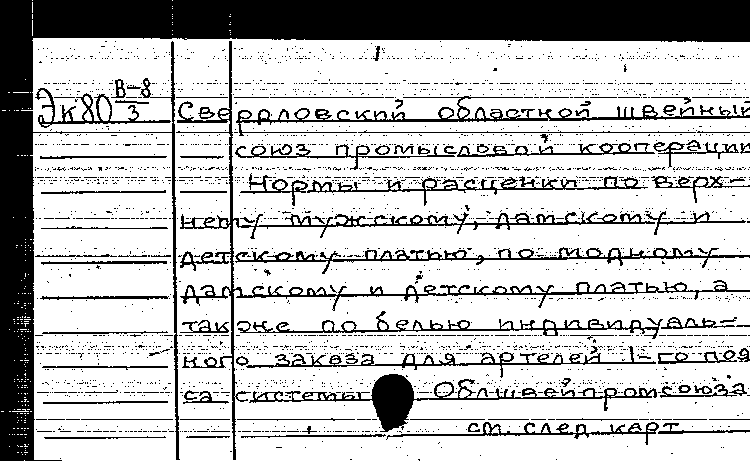 Эк80 В-8/3 Свердловский областной швейный
союз промысловой кооперации
Нормы и расценки по верх-
нему мужскому, дамскому и
детскому платью, по модному
дамскому и детскому платью, а
также по белью индивидуаль-
ного заказа для артелей 1-го поя
са системы Облшвейпромсоюза
см. след. карт.